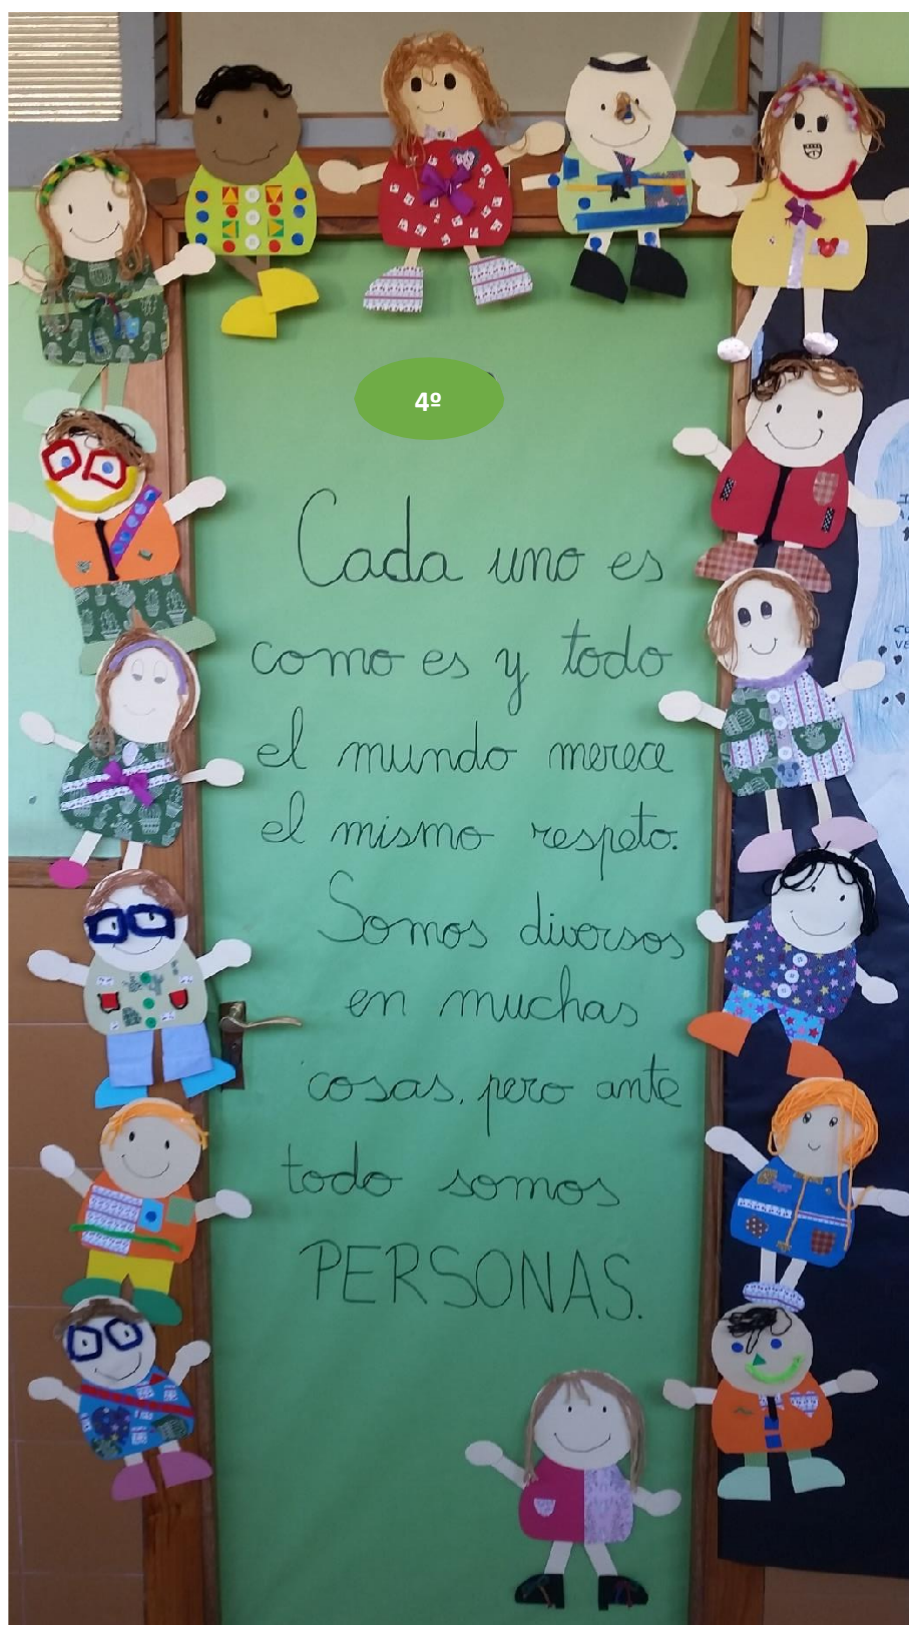 4º
Cada uno es
como es y todo
el mundo merece
el mismo respeto.
Somos diversos
en muchas
cosas, pero ante
todo somos
PERSONAS.